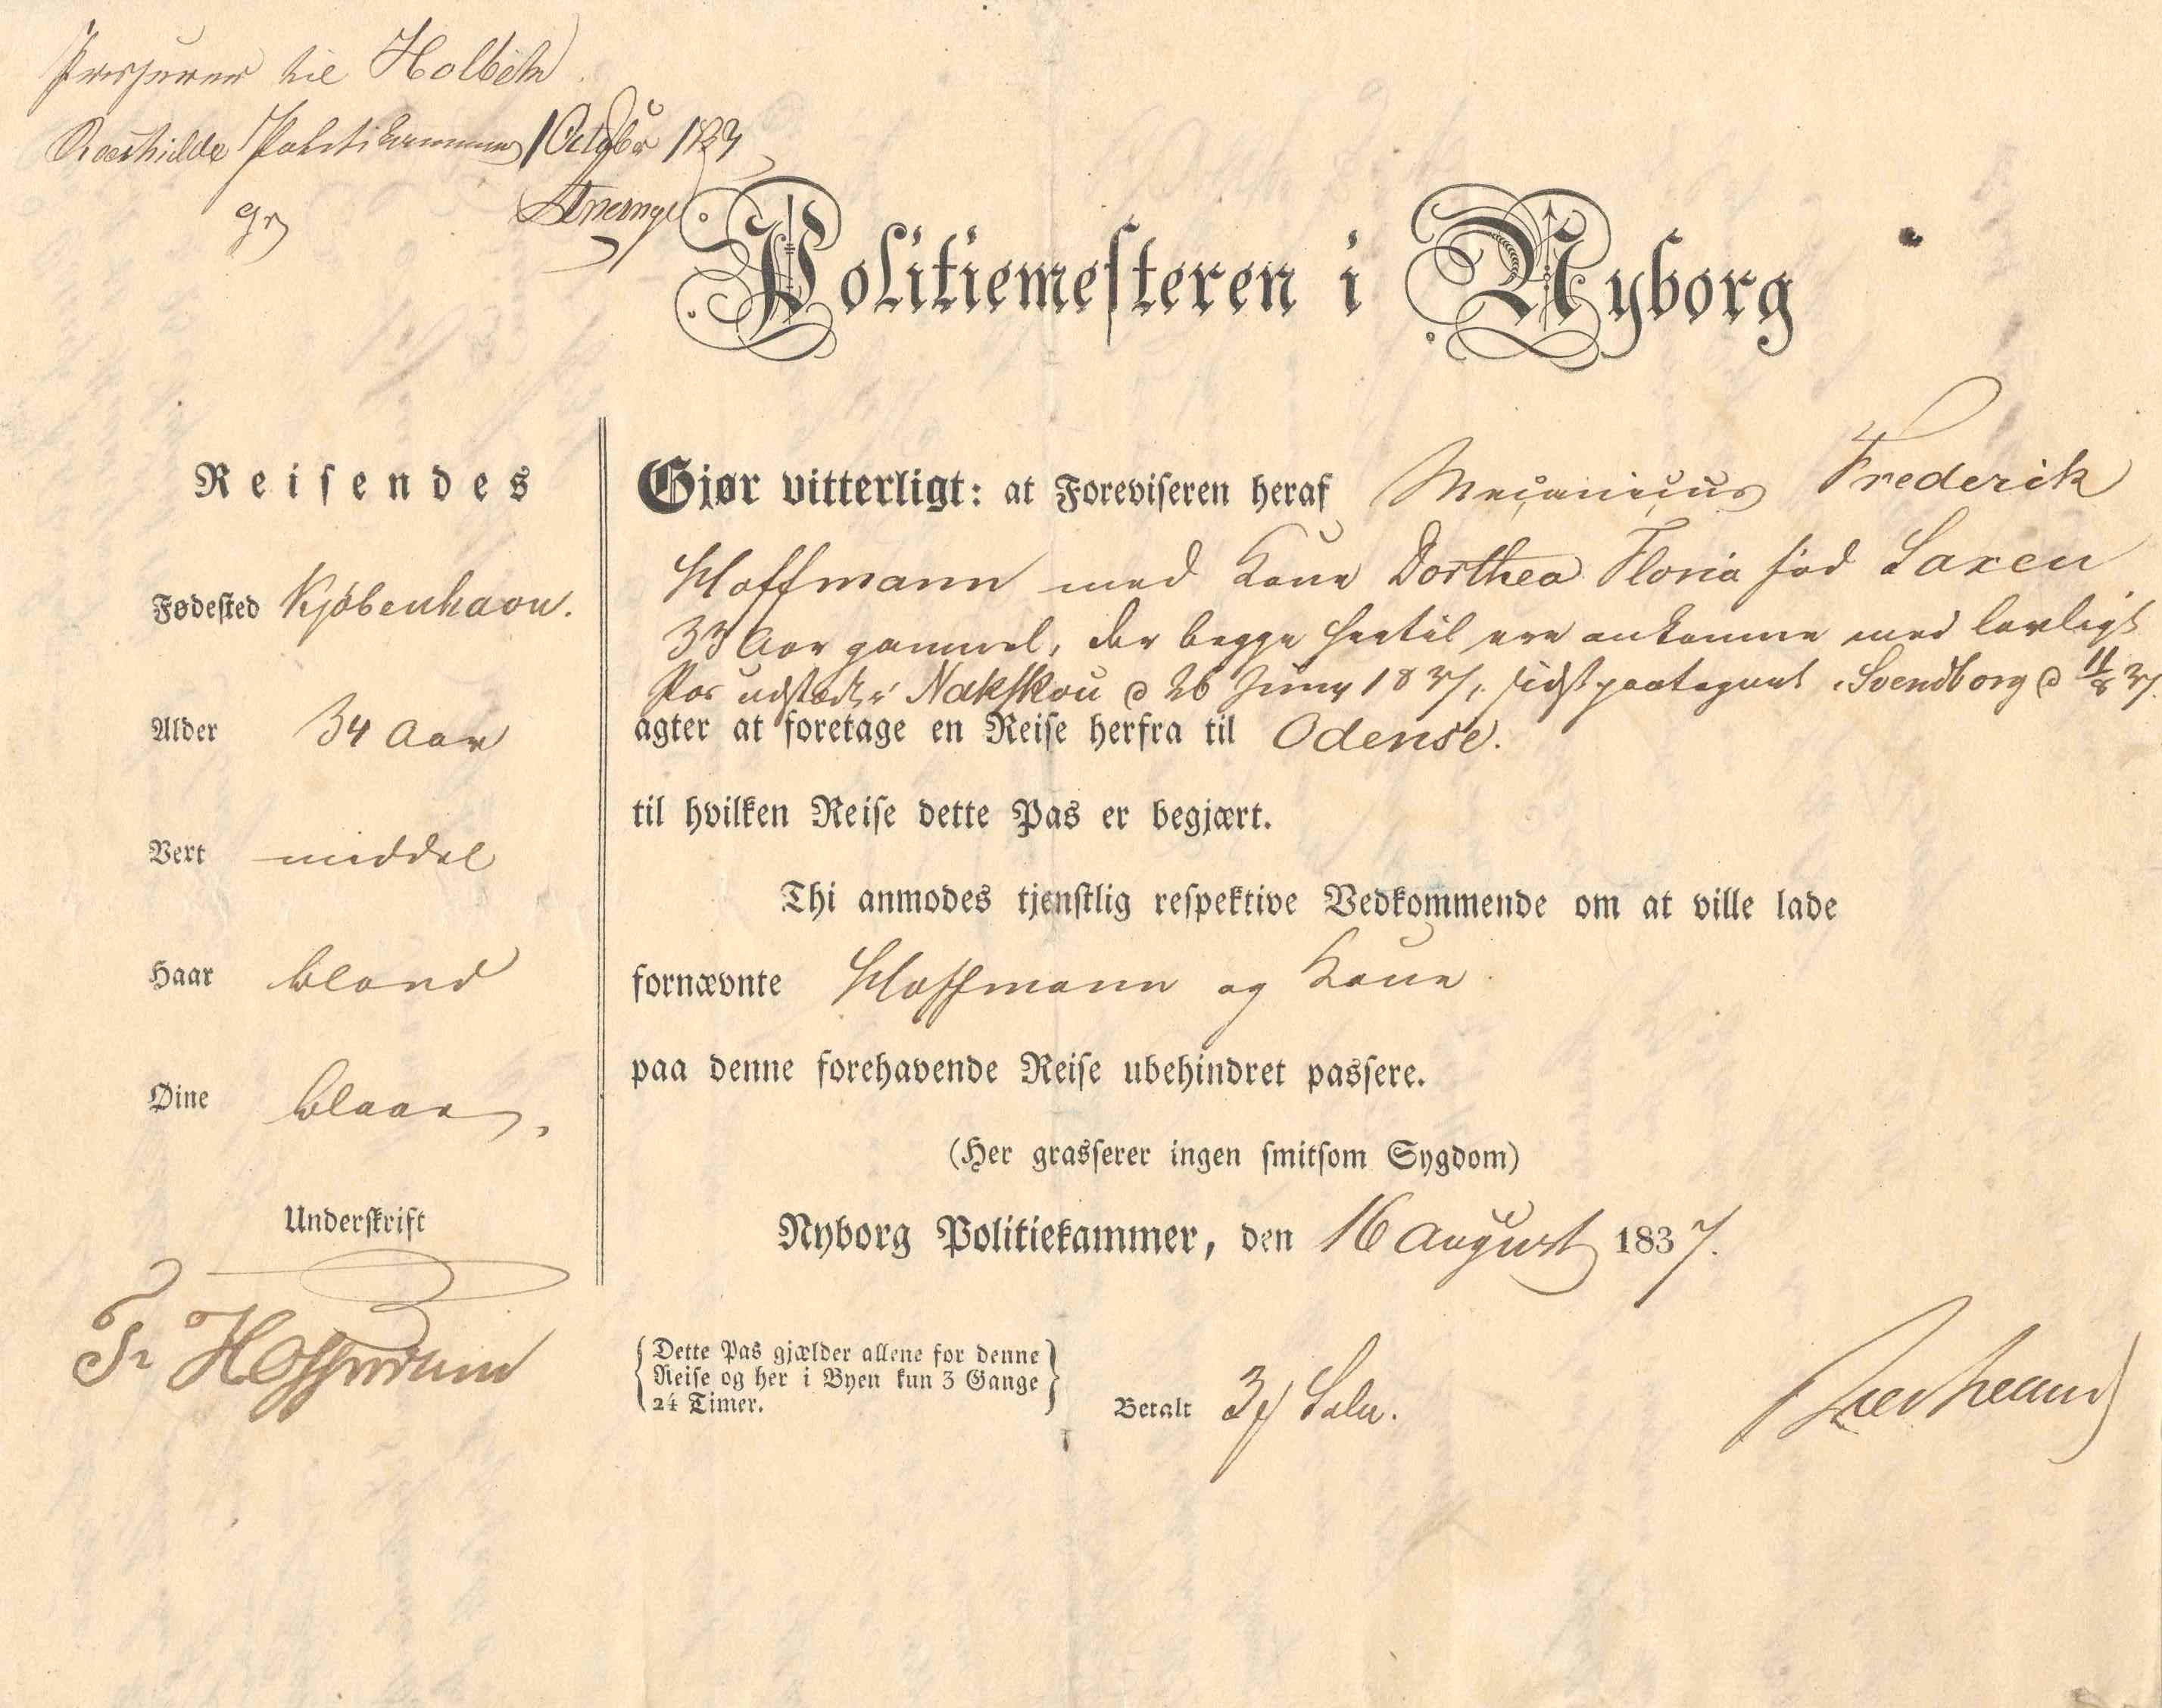 Passerer til Holbek
Roeskilde Politikammer 1 October 1837
Politiemesteren i Nyborg
Reisendes
Fødested Kjøbenhavn.
Alder 34 Aar
Vext middel
Haar blond
Øine blaae
Underskrift
Fr Hoffmann
Gjør vitterligt: at Foreviseren heraf Mecanicus Frederik
Hoffmann med Kone Dorthea Floria fød Saxen
33 Aar gammel, der begge hertil ere ankomne med lovligt
Pas udstedt i Nakskou d 26 Juny 1837, sidst paategnet i Svendborg d 11/8 37.
agter at foretage en Reise herfra til Odense.
til hvilken Reise dette Pas er begjært.
Thi anmodes tjenstlig respektive Vedkommende om at ville lade
fornævnte Hoffmann og Kone
paa denne forehavende Reise ubehindret passere.
(Her grasserer ingen smitsom Sygdom)
Nyborg Politiekammer, den 16 August 1837.
Dette Pas gjælder allene for denne
Reise og her i Byen kun 3 Gange
24 Timer.
Betalt